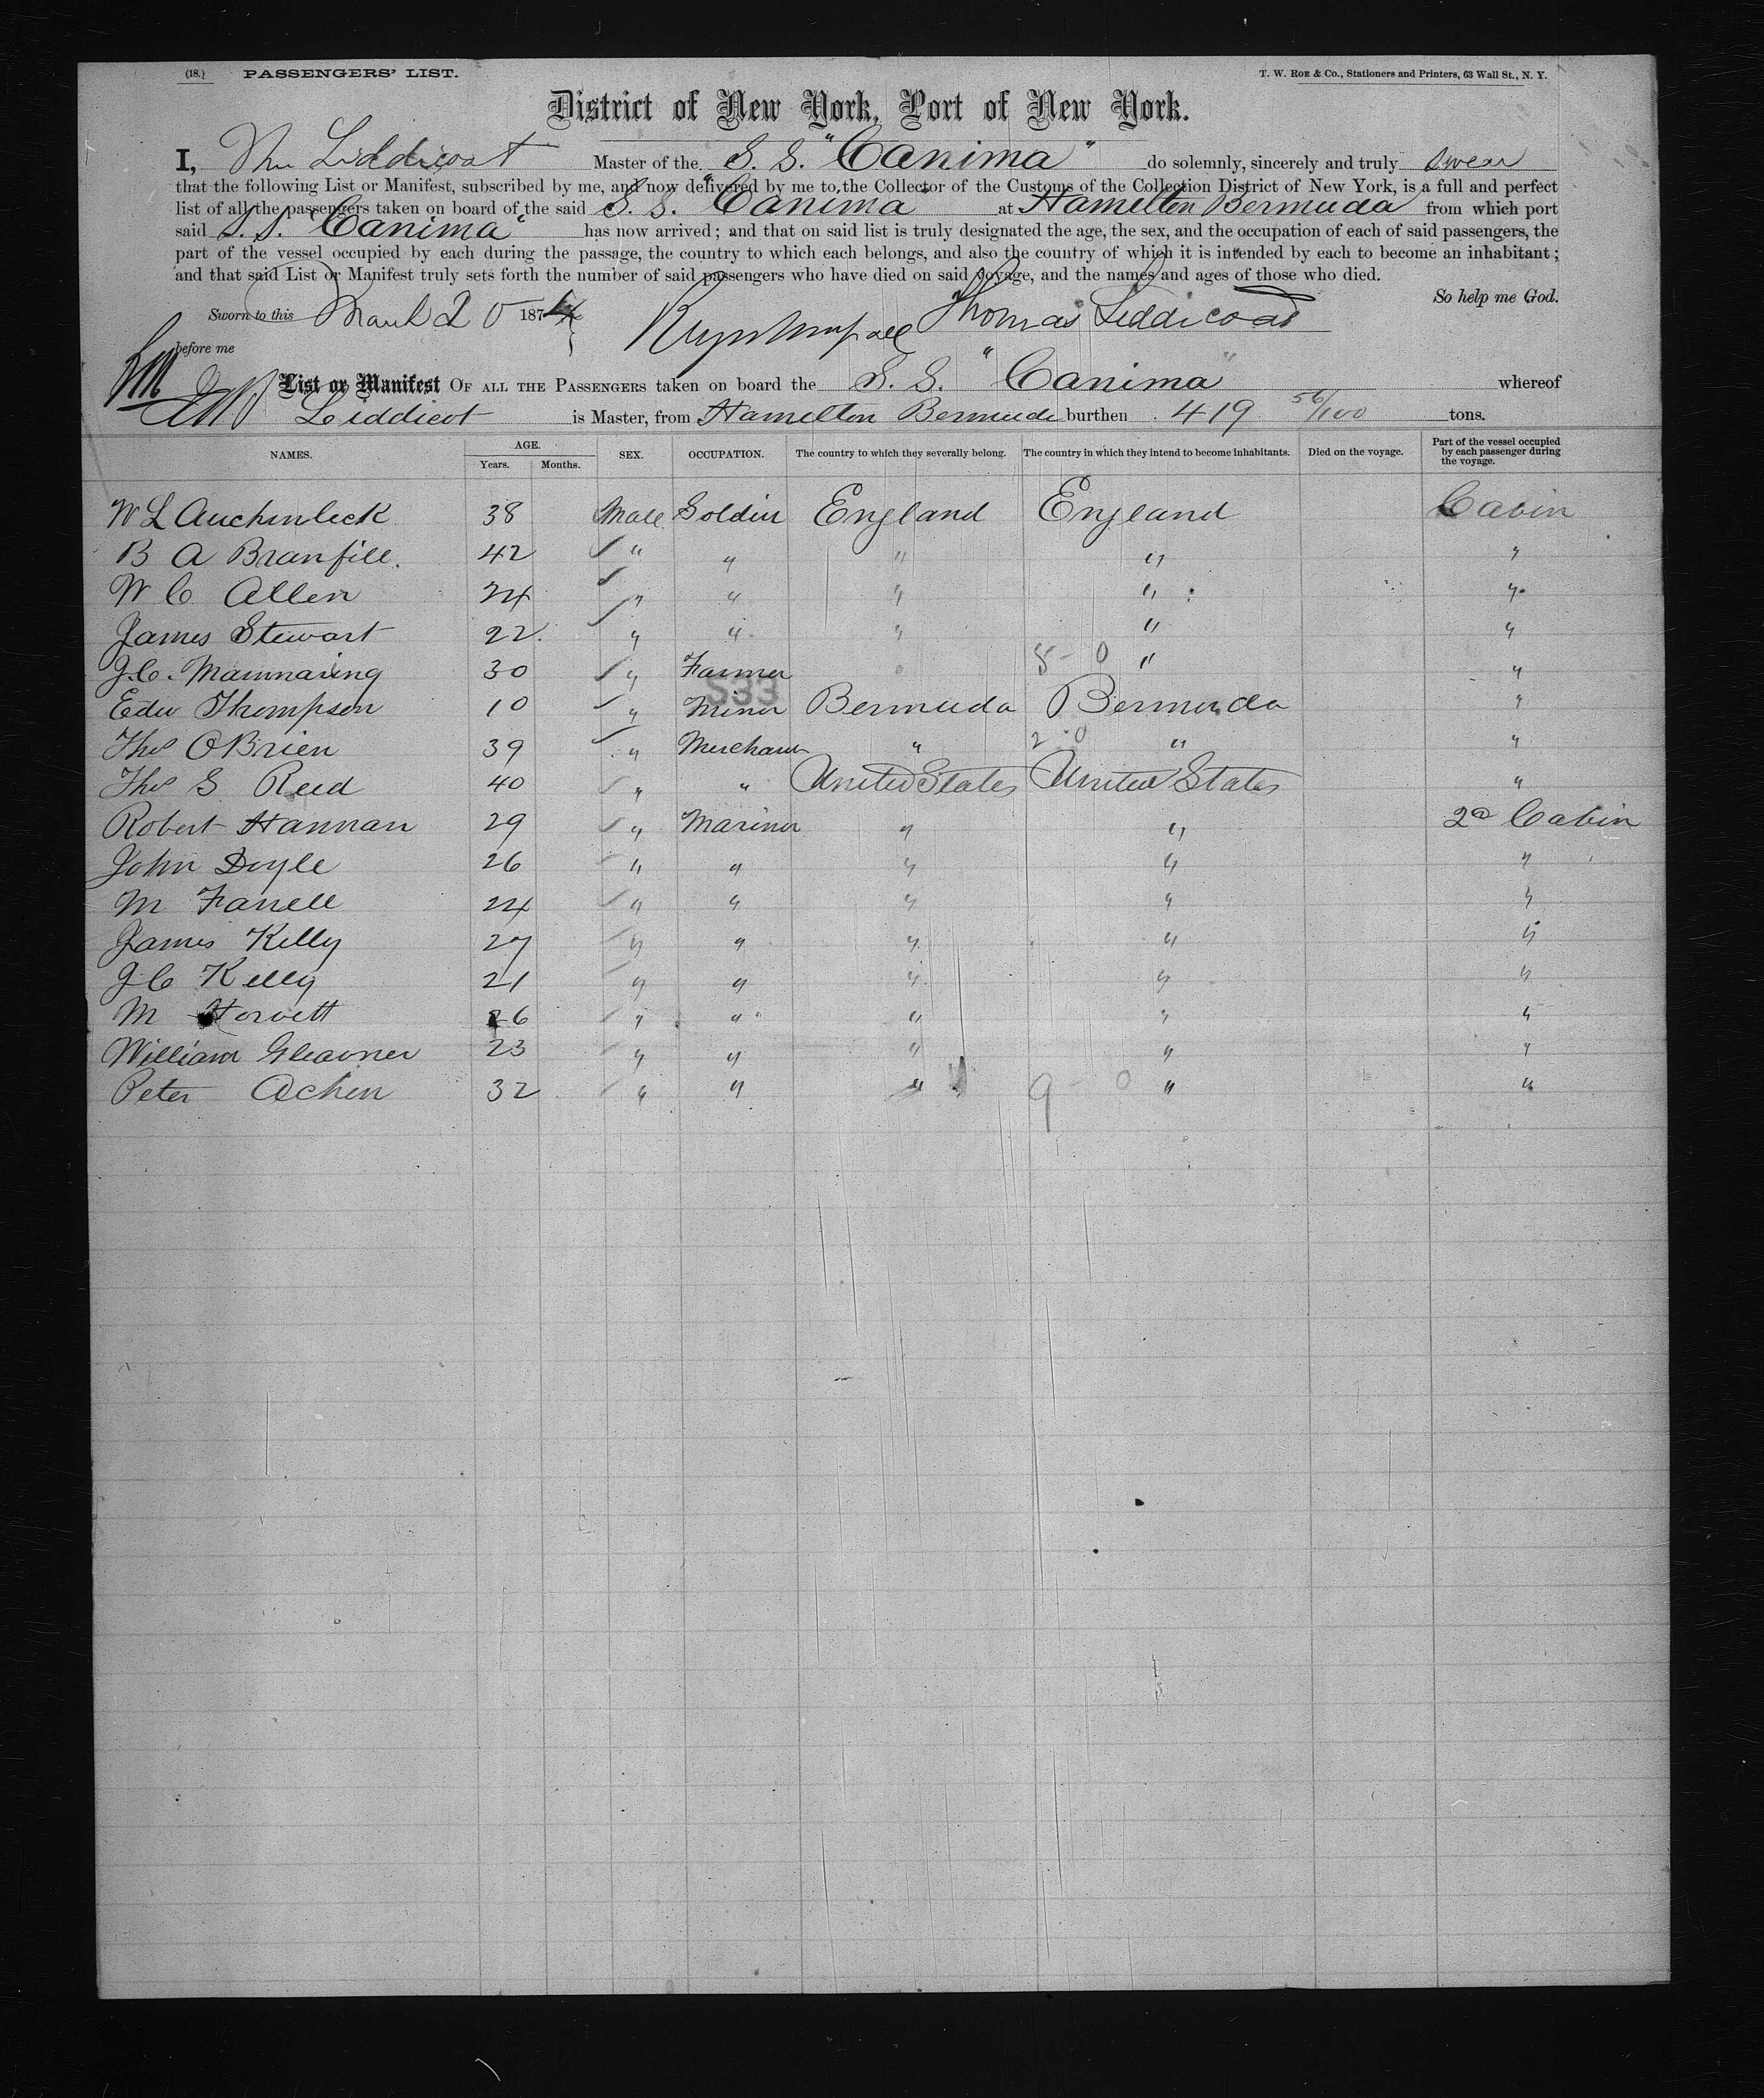 (18.) PASSENGERS' LIST. T. W. ROE & CO., Stationers and Printers, 63 Wall St., N. Y.
District of New York, Port of New York.
I, Liddicoat Master of the S. S. "Canima" do solemnly, sincerely and truly swear
that the following List or Manifest, subscribed by me, and now delivered by me to the Collector of the Customs of the Collection District of New York, is a full and perfect
list of all the passengers taken on board of the said S. S. "Canima at Hamilton Bermuda from which port
said S. S. "Canima" has now arrived; and that on said list is truly designated the age, the sex, and the occupation of each of said passengers, the
part of the vessel occupied by each during the passage, the country to which each belongs, and also the country of which it is intended by each to become an inhabitant;
and that said List or Manifest truly sets forth the number of said passengers who have died on said voyage, and the names and ages of those who died.
So help me God.
Sworn to this March 20 1874 Thomas Liddicoat
before me
List or Manifest OF ALL THE PASSENGERS taken on board the S. S. "Canima" whereof
Liddicot is Master, from Hamilton Bermuda burthen 419 56/100 tons.
NAMES. AGE. Years. Months. SEX. OCCUPATION. The country to which they severally belong. The country in which they intend to become inhabitants. Died on the voyage. Part of the vessel occupied by each passenger during the voyage.
W L Auchinleck 38 Male Soldier England England Cabin
B A Branfill. 42 " " " " "
W C Allen 24 " " " " "
James Stewart 22. " " " " "
J. C. Mainwaring 30 " Farmer " 8-0 " "
S33
Edw Thompson 10 " Minor Bermuda Bermuda "
Thos OBrien 39 " Merchant " 2-0 " "
Thos S Reed 40 " " United States United States "
Robert Hannan 29 " Mariner " " 2d Cabin
John Doyle 26 " " " " "
M Farrell 24 " " " " "
James Kelly 27 " " " " "
J C Kelly 21 " " " " "
M 26 " " " " "
William Gleavner 23 " " " " "
Peter Achen 32 " " " 9-0 " "